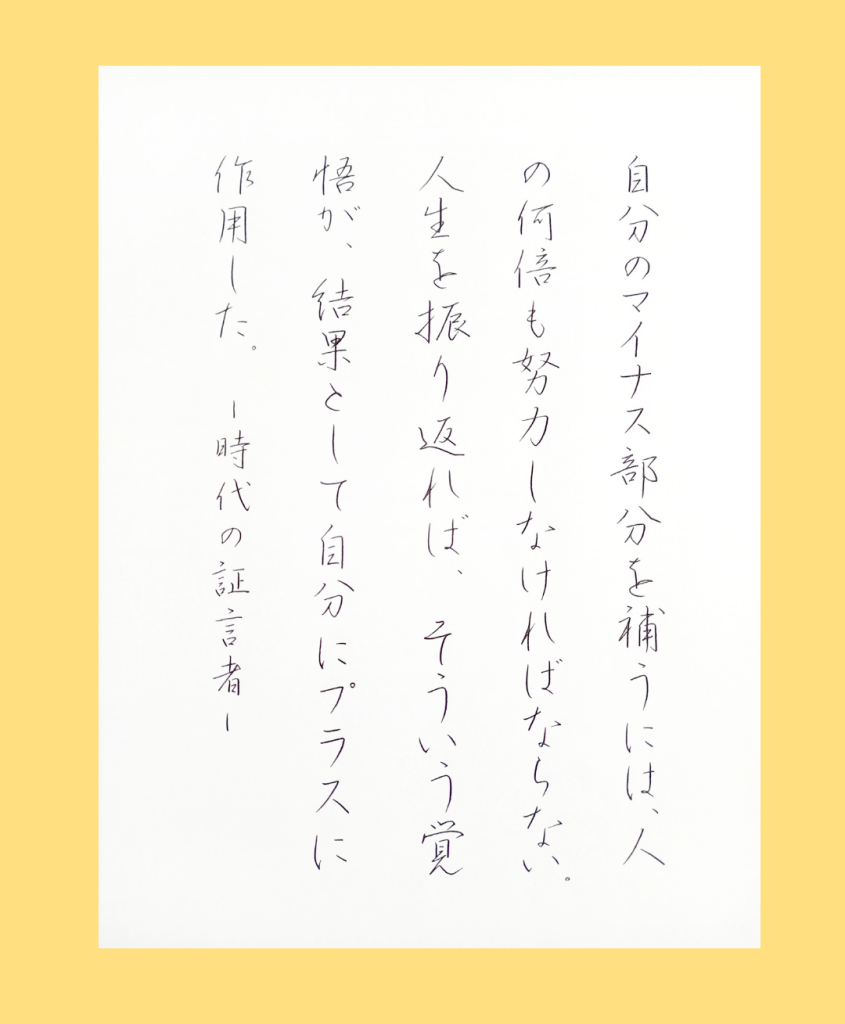 自分のマイナス部分を補うには、人
の何倍も努力しなければならない。
人生を振り返れば、そういう覚
悟が、結果として自分にプラスに
作用した。 -時代の証言者-